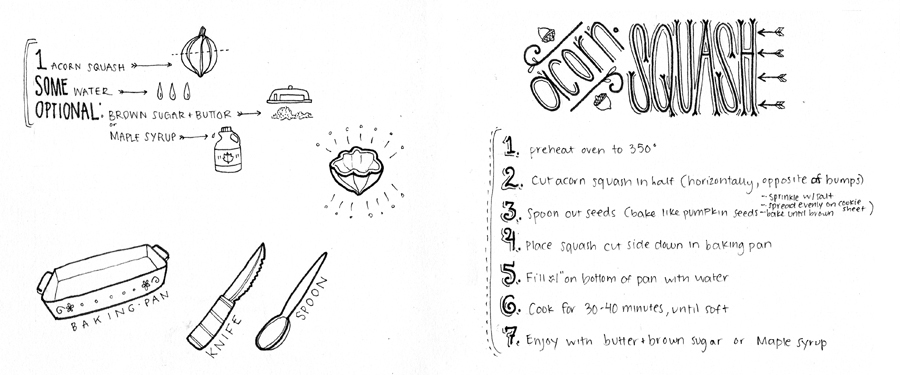 1 ACORN SQUASH
SOME WATER
OPTIONAL: BROWN SUGAR + BUTTOR
or
MAPLE SYRUP
BAKING-PAN
KNIFE
SPOON
acorn.
SQUASH
1. preheat oven to 350°
2. Cut acorn squash in half (horizontally, opposite of bumps)
3. Spoon out seeds (bake like pumpkin seeds
- sprinkle w/salt
- spread evenly on cookie sheet
- bake until brown)
4. Place squash cut side down in baking pan
5. Fill ≈1" on bottom of pan with water
6. Cook for 30-40 minutes, until soft
7. Enjoy with butter + brown sugar or Maple Syrup